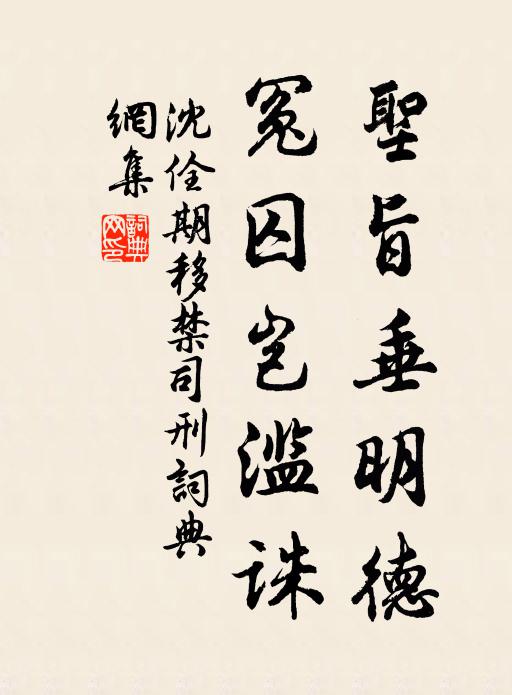 聖旨垂明德
冤囚岂滥誅
沈佺期移禁司刑詞典
網集
詞典網印